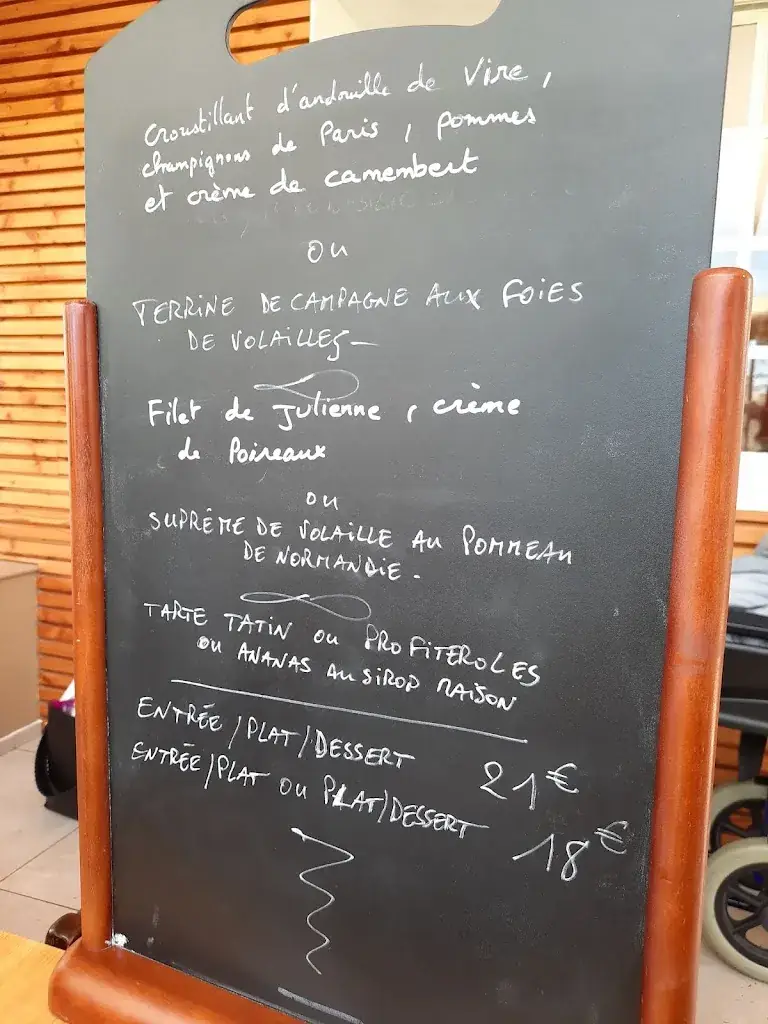 Croustillant d'andouille de Vire,
champignons de Paris, pommes
et crème de camembert
ou
TERRINE DE CAMPAGNE AUX FOIES
DE VOLAILLES—
Filet de Julienne, crème
de Poireaux
ou
SUPRÊME DE VOLAILLE AU POMMEAU
DE NORMANDIE.
TARTE TATIN ou PROFITEROLES
ou ANANAS AU SIROP MAISON
ENTRÉE/PLAT/DESSERT 21€
ENTRÉE/PLAT ou PLAT/DESSERT 18€